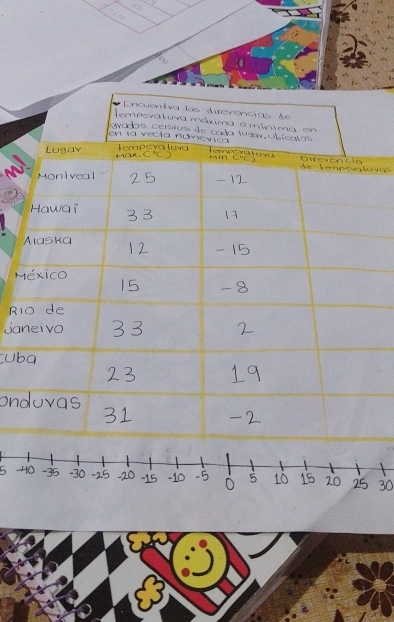 Encuentra las diferencias de
temperatura máxima o mínima en
grados celsius de cada lugar. Ubícalas
en la recta numerica
Lugar temperatura Max.(°C) Temperatura min (°C) Diferencia de temperaturas
Montreal 25 -12
Hawai 33 17
Alaska 12 -15
México 15 -8
Rio de Janeiro 33 2
cuba 23 19
onduras 31 -2
5 -40 -35 -30 -25 -20 -15 -10 -5 0 5 10 15 20 25 30